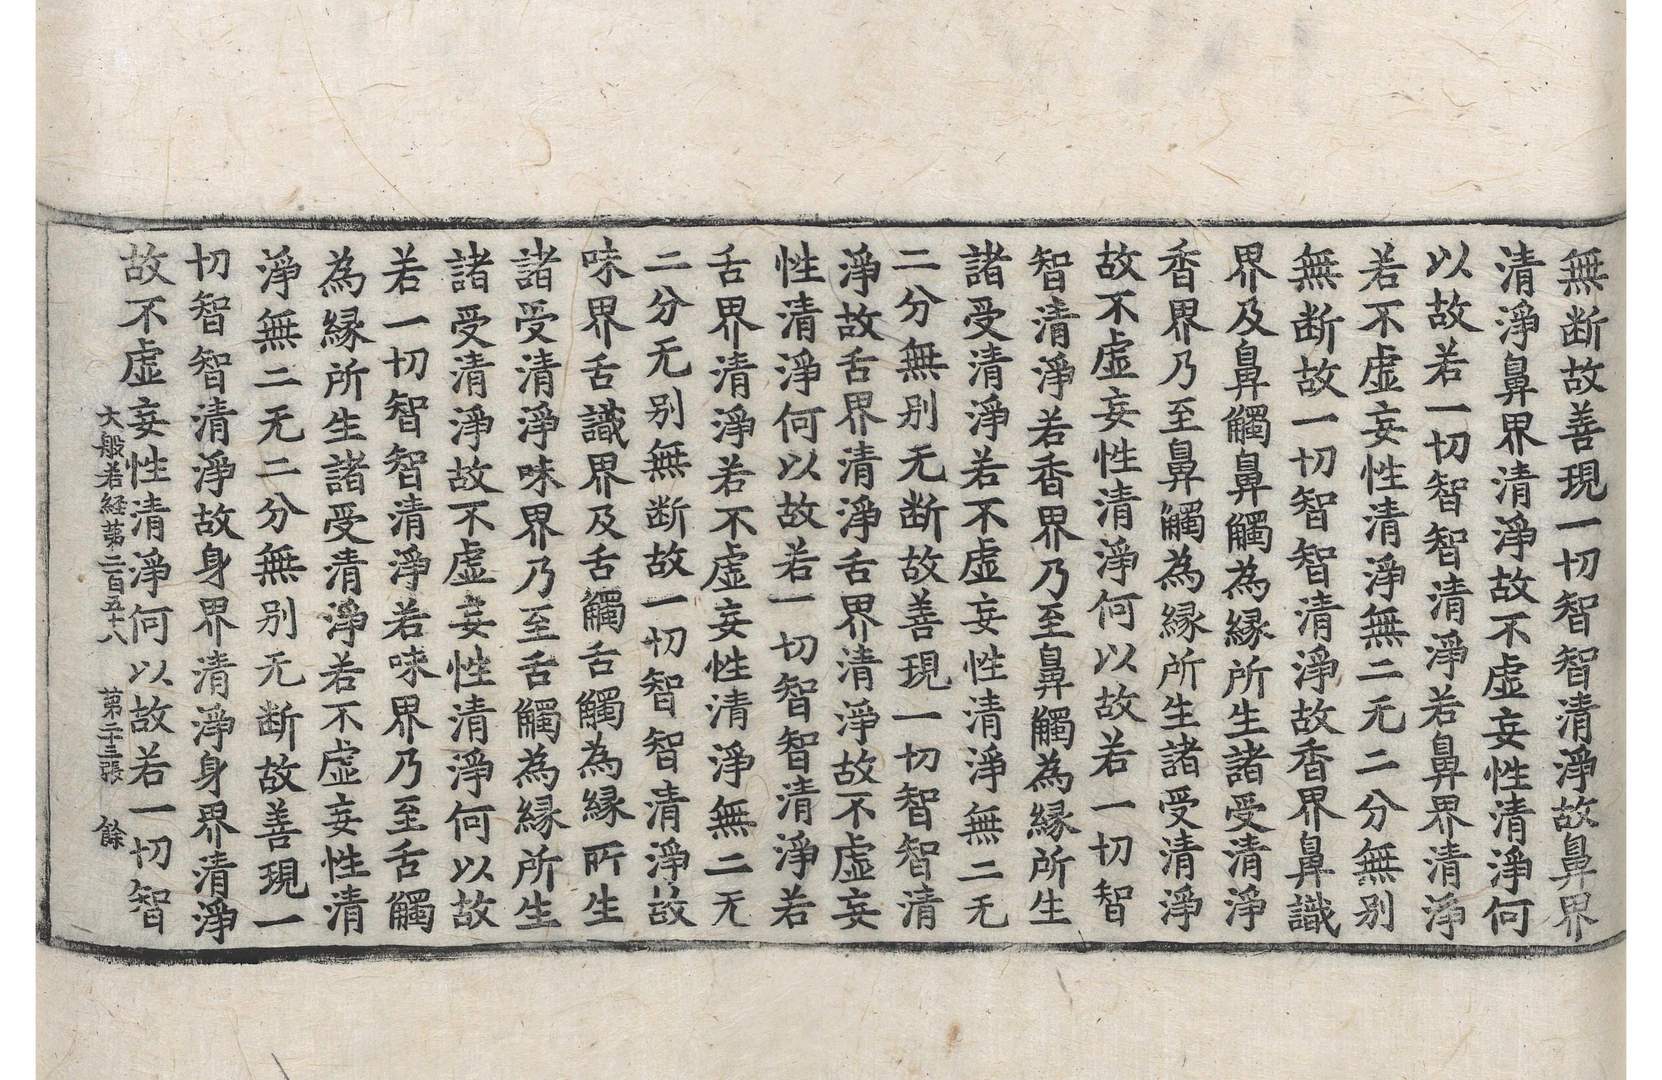 無断故善現一切智智清淨故鼻界
清淨鼻界清淨故不虚妄性清淨何
以故若一切智智清淨若鼻界清淨
若不虚妄性清淨無二无二分無别
無断故一切智智清淨故香界鼻識
界及鼻觸鼻觸為縁所生諸受清淨
香界乃至鼻觸為縁所生諸受清淨
故不虚妄性清淨何以故若一切智
智清淨若香界乃至鼻觸為縁所生
諸受清淨若不虚妄性清淨無二无
二分無别无断故善現一切智智清
淨故舌界清淨舌界清淨故不虚妄
性清淨何以故若一切智智清淨若
舌界清淨若不虚妄性清淨無二无
二分无别無断故一切智智清淨故
味界舌識界及舌觸舌觸為縁所生
諸受清淨味界乃至舌觸為縁所生
諸受清淨故不虚妄性清淨何以故
若一切智智清淨若味界乃至舌觸
為縁所生諸受清淨若不虚妄性清
淨無二无二分無别无断故善現一
切智智清淨故身界清淨身界清淨
故不虚妄性清淨何以故若一切智
大般若経第二百五十八 第二十三張 餘